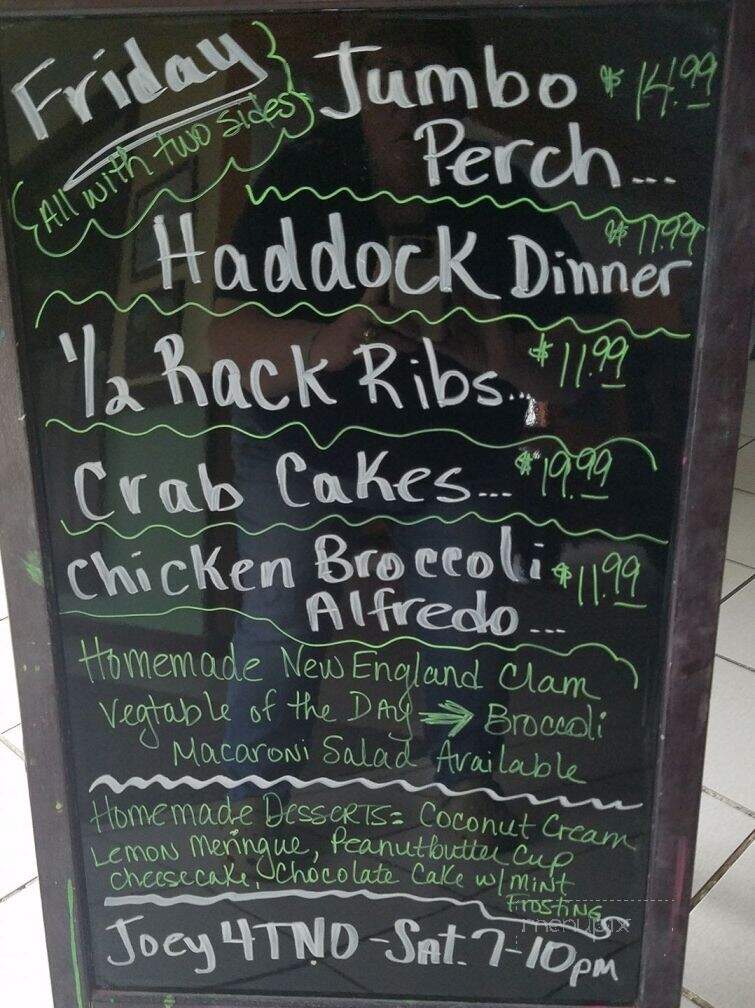 Friday
All with two sides
Jumbo $14.99
Perch...
$11.99
Haddock Dinner
1/2 Rack Ribs... $11.99
Crab Cakes... $19.99
Chicken Broccoli $11.99
Alfredo...
Homemade New England Clam
Vegtable of the Day → Broccoli
Macaroni Salad Available
Homemade Desserts= Coconut Cream
Lemon Meringue, Peanutbutter Cup
Cheesecake, Chocolate Cake w/ mint
frosting
Joey 4TNO - Sat. 7-10pm
menupix